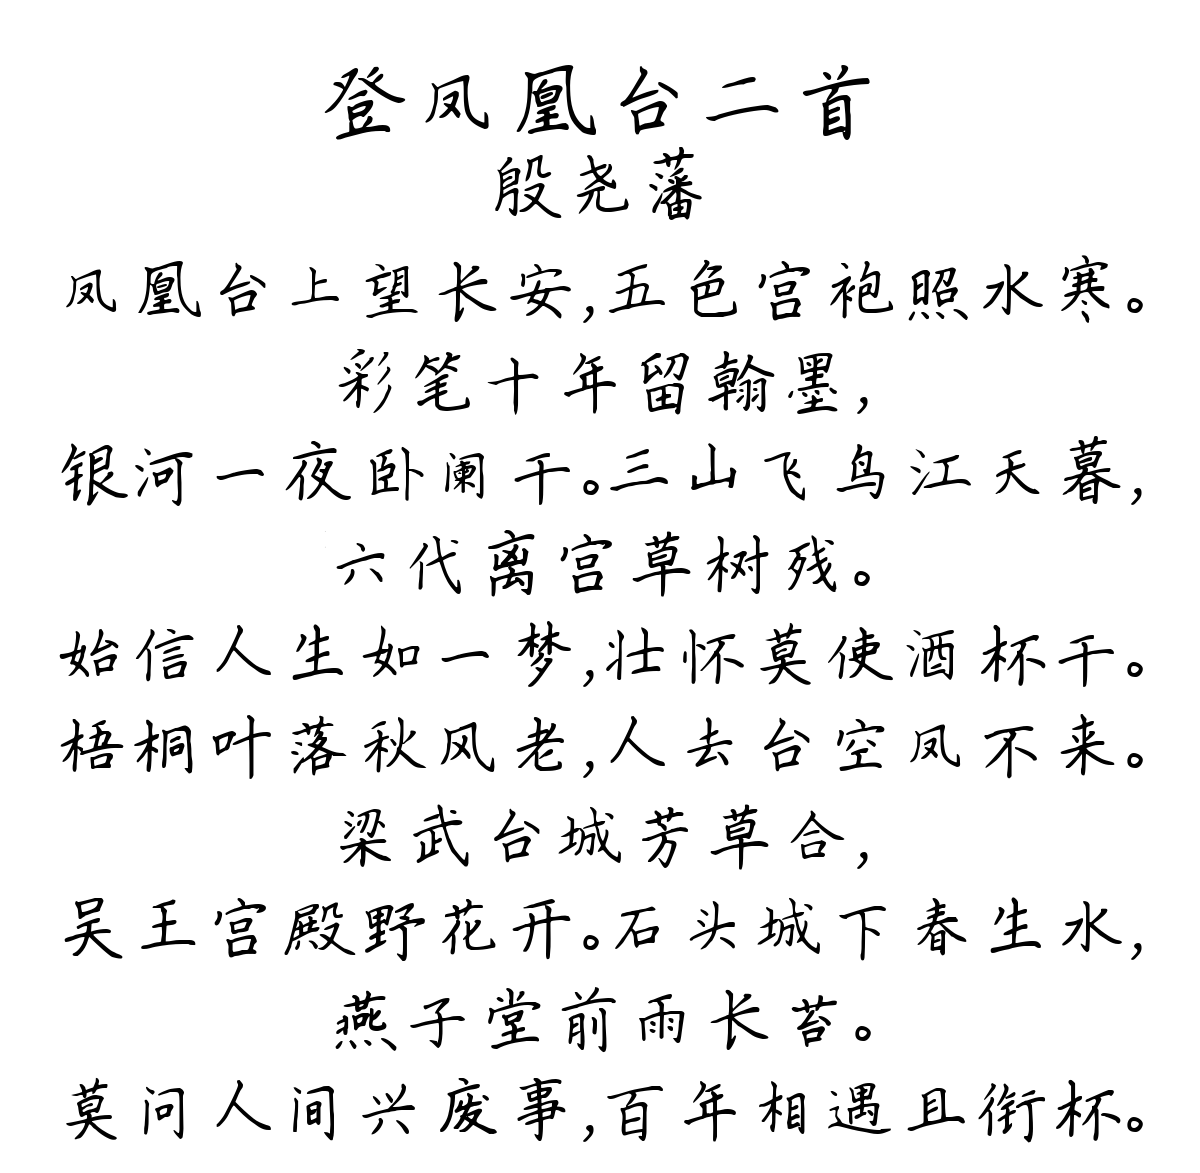 登凤凰台二首
殷尧藩
凤凰台上望长安,五色宫袍照水寒。
彩笔十年留翰墨,
银河一夜卧阑干。三山飞鸟江天暮,
六代离宫草树残。
始信人生如一梦,壮怀莫使酒杯干。
梧桐叶落秋风老,人去台空凤不来。
梁武台城芳草合,
吴王宫殿野花开。石头城下春生水,
燕子堂前雨长苔。
莫问人间兴废事,百年相遇且衔杯。